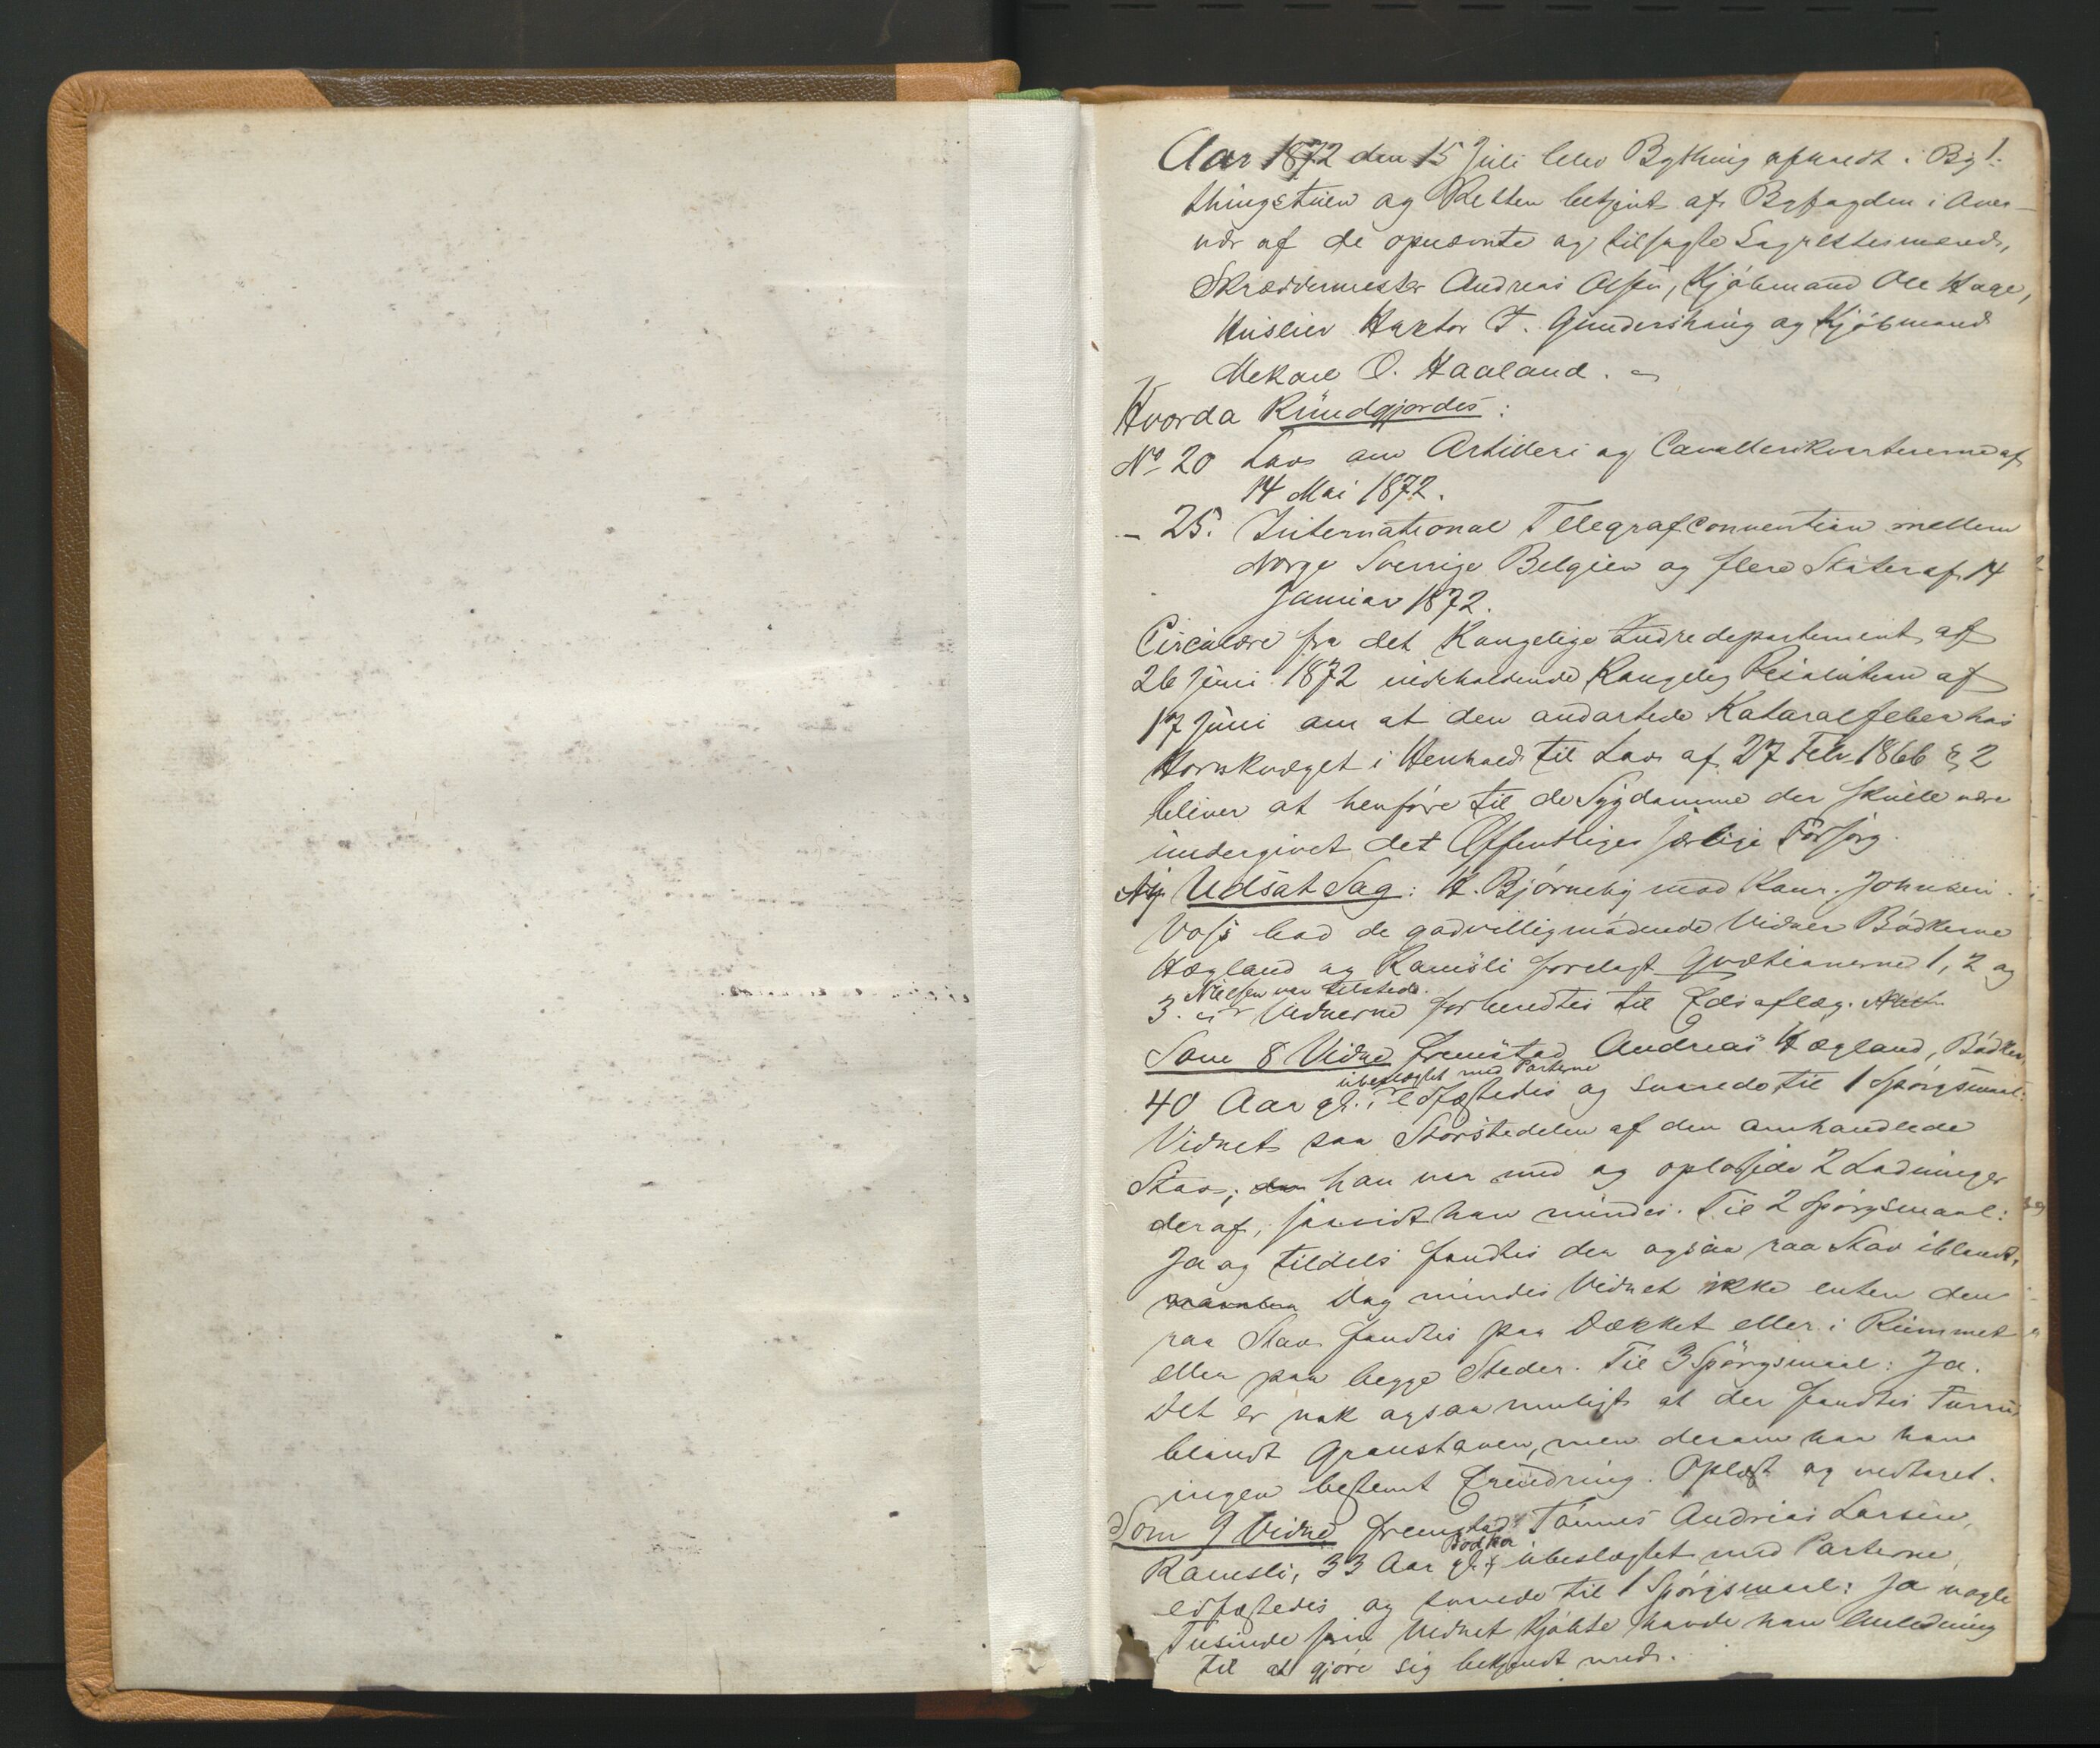 Aar 1872 den 15 Juli blev Bything afholdt i By 1.
thingstuen og Retten betjent af Byfogden i Over-
vær af de opnævnte og tilsagte Lagrettesmænd,
Skræddermester Andreas Olsen, Kjøbmand Ole Hage,
Huseier Haktor T. Gundershaug og Kjøbmand
Mekael O. Haaland.
Hvorda Kundgjordes:
No 20 Lov om Artilleri og Cavallerikvartererne af
14 Mai 1872.
- 25. International Telegrafconvention mellem
Norge Sverrige Belgien og flere Stater af 14
Januar 1872.
Circulære fra det Kongelige Indredepartement af
26 Juni 1872 indeholdende Kongelig Resolution af
17 Juni om at den ondartede Kataralfeber hos
Hornkvæget i Henhold til Lov af 27 Febr 1866 § 2
bliver at henføre til de Sygdomme der skulle være
undergivet det Offentliges særlige Forsorg.
Ny Udsat Sag: H. Bjørneby mod Kons. Johnsen.
Voss bad de godvilligmødende Vidner Bødkerne
Hægland og Ramsli forelagt Qvætionerne 1, 2 og
Nielsen var tilstede.
3. Vidnerne forberedtes til Edsaflæg.
Som 8 Vidne fremstod Andreas Hægland, Bødker,
ubeslægtet med Parterne
40 Aar gl. edfæstedes og svarede til 1 Spørgsmaal:
Vidnet saa Størstedelen af den omhandlede
Stav; han var med og oplossede 2 Ladninger
deraf, saavidt han mindes. Til 2 Spørgsmaal:
Ja og tildels fandtes der ogsaa raa Stav iblandt,
Dog mindes Vidnet ikke enten den
raa Stav fandtes paa Dækket eller i Rummet
eller paa begge Steder. Til 3 Spørgsmaal: Ja.
Det er nok ogsaa muligt at der fandtes Furru
blandt Granstaven, men derom har han
ingen bestemt Erindring. Oplæst og vedtaget.
Som 9 Vidne fremstod Tønnes Andreas Larsen
Bødker
Ramsli, 33 Aar gl. ubeslægtet med Parterne,
edfæstedes og svarede til 1 Spørgsmaal: Ja nogle
Tusinde som Vidnet kjøbte havde han Anledning
til at gjøre sig bekjendt med.